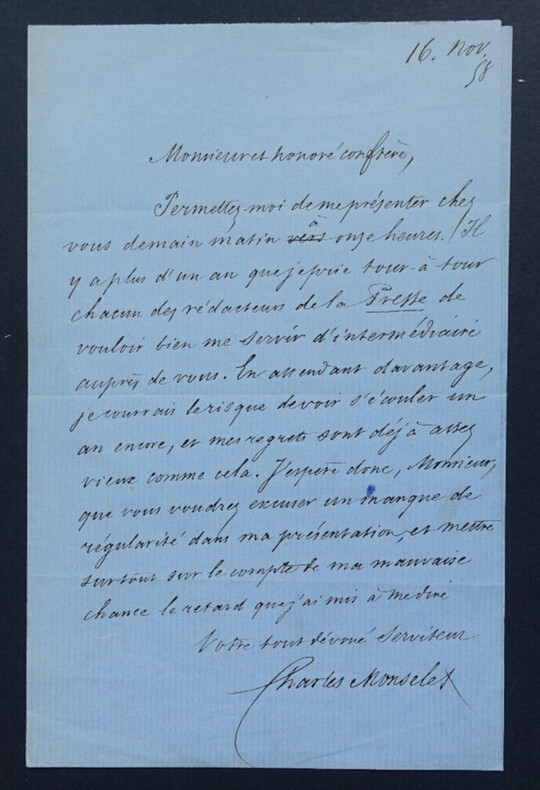 16. Nov.
58
Monsieur et honoré confrère,
Permettez-moi de me présenter chez
vous demain matin vers à onze heures. Il
y a plus d'un an que je prie tour-à-tour
chacun des rédacteurs de la Presse de
vouloir bien me servir d'intermédiaire
auprès de vous. En attendant davantage,
je courrais le risque de voir s'écouler un
an encore, et mes regrets sont déjà assez
vieux comme cela. J'espère donc, Monsieur,
que vous voudrez excuser un manque de
régularité dans ma présentation, et mettre
surtout sur le compte de ma mauvaise
chance le retard que j'ai mis à me dire
Votre tout dévoué serviteur
Charles Monselet